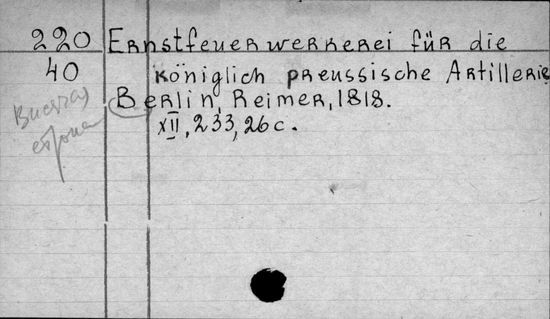 220 Ernstfeuerwerkerei für die
40 königlich preussische Artillerie
Berlin, Reimer, 1818.
XII, 233, 26 c.